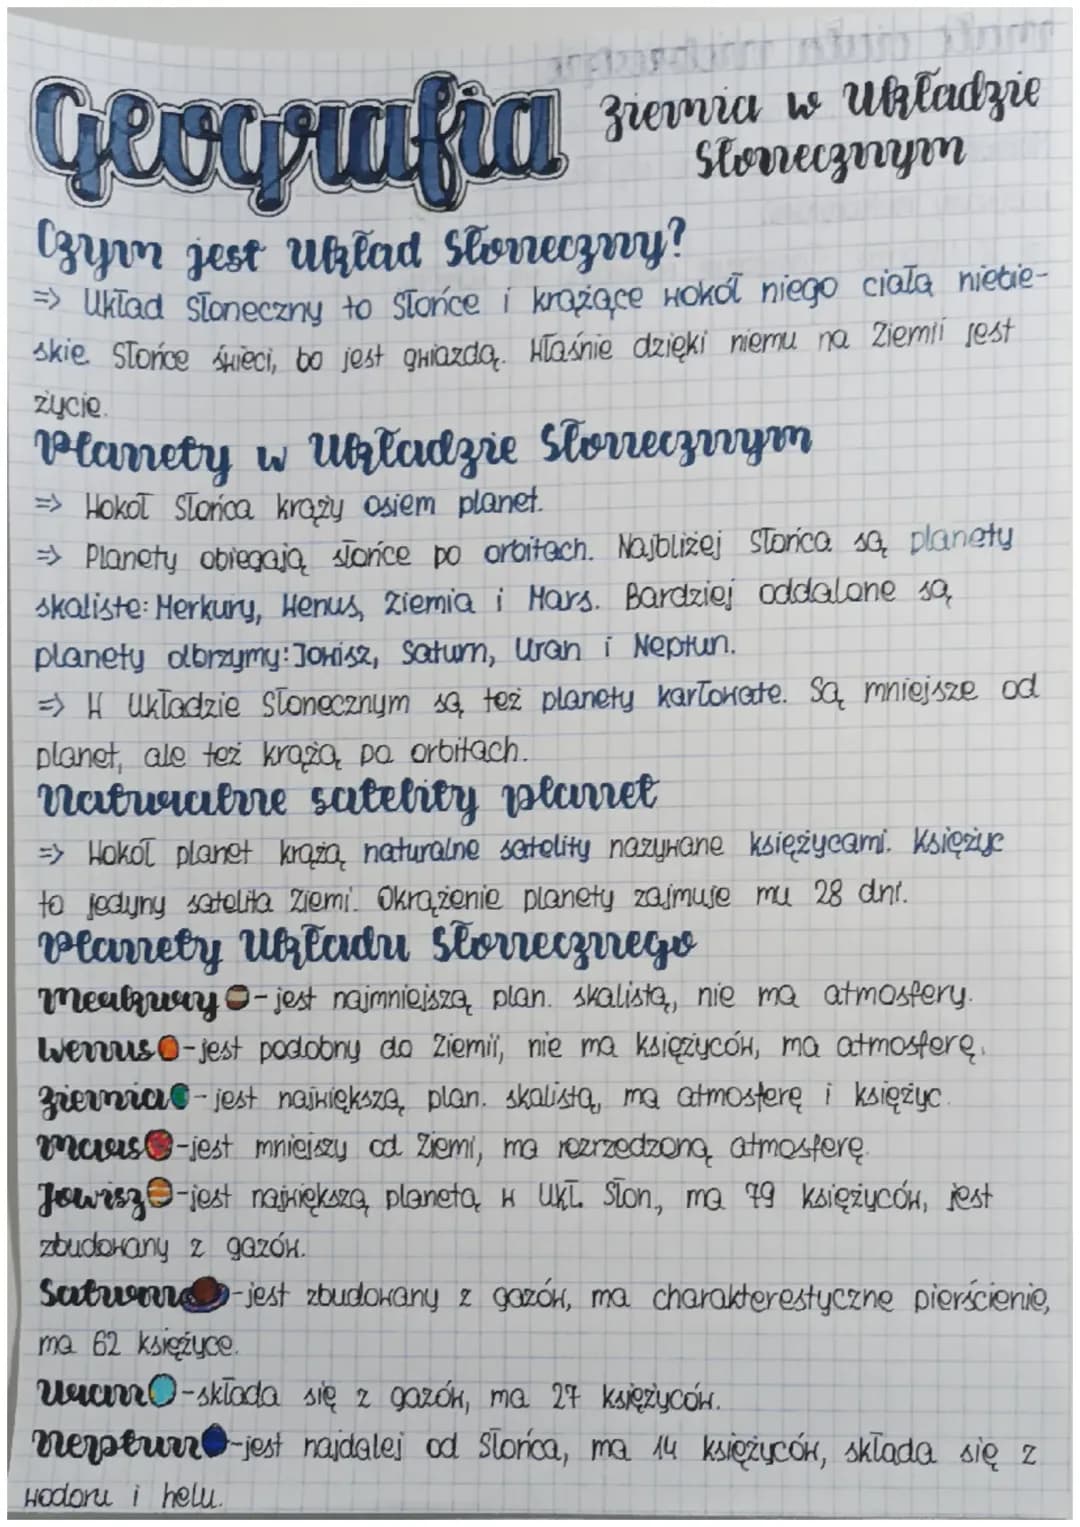 Geografia
Ziemia w Układzie
Słonecznym
Czym jest Układ Słoneczny?
=> Układ Słoneczny to Słońce i krążące wokół niego ciała niebie-
skie. Słońce świeci, bo jest gwiazdą. Właśnie dzięki niemu na Ziemii jest
życie.
Planety w Układzie Słonecznym
=> Wokoł Słońca krąży osiem planet.
=> Planety obiegają słońce po orbitach. Najbliżej Słońca są planety
skaliste: Merkury, Wenus, Ziemia i Mars. Bardziej oddalone są
planety olbrzymy: Jowisz, Saturn, Uran i Neptun.
=> W Układzie Słonecznym są też planety karłowate. Są mniejsze od
planet, ale też krążą po orbitach.
Naturalne satelity planet
=> Wokoł planet krążą naturalne satelity nazywane księżycami. Księżyc
to jedyny satelita Ziemi. Okrążenie planety zajmuje mu 28 dni.
Planety Układu Słonecznego
Merkury - jest najmniejszą plan. skalistą, nie ma atmosfery.
Wenus - jest podobny do Ziemii, nie ma księżyców, ma atmosferę.
Ziemia - jest największą plan. skalistą, ma atmosferę i księżyc.
Mars - jest mniejszy od Ziemi, ma rozrzedzoną atmosferę.
Jowisz - jest największą planetą w Ukł. Słon., ma 79 księżyców, jest
zbudowany z gazów.
Saturn - jest zbudowany z gazów, ma charakterestyczne pierścienie,
ma 62 księżyce.
Uran - składa się z gazów, ma 27 księżyców.
Neptun - jest najdalej od Słońca, ma 14 księżyców, składa się z
wodoru i helu.